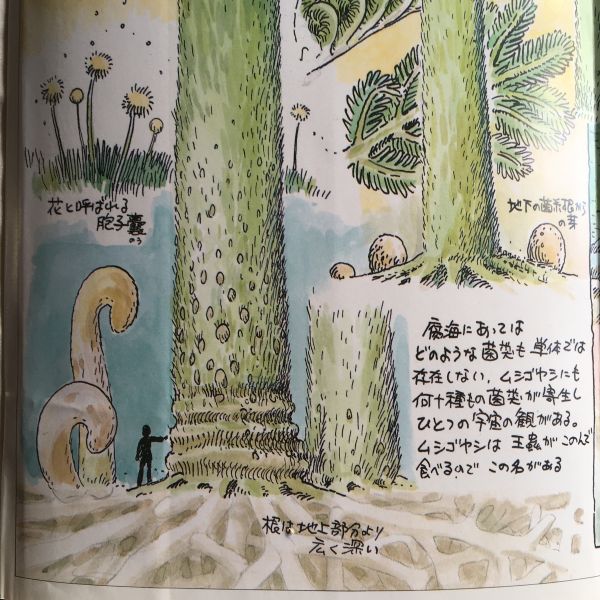 花と呼ばれる
胞子嚢
のう
地下の菌糸根から
の芽
腐海にあっては
どのような菌類も単体では
存在しない。ムシゴヤシにも
何十種もの菌類が寄生し
ひとつの宇宙の観がある。
ムシゴヤシは王蟲がこのんで
食べるので この名がある
根は地上部分より
広く深い